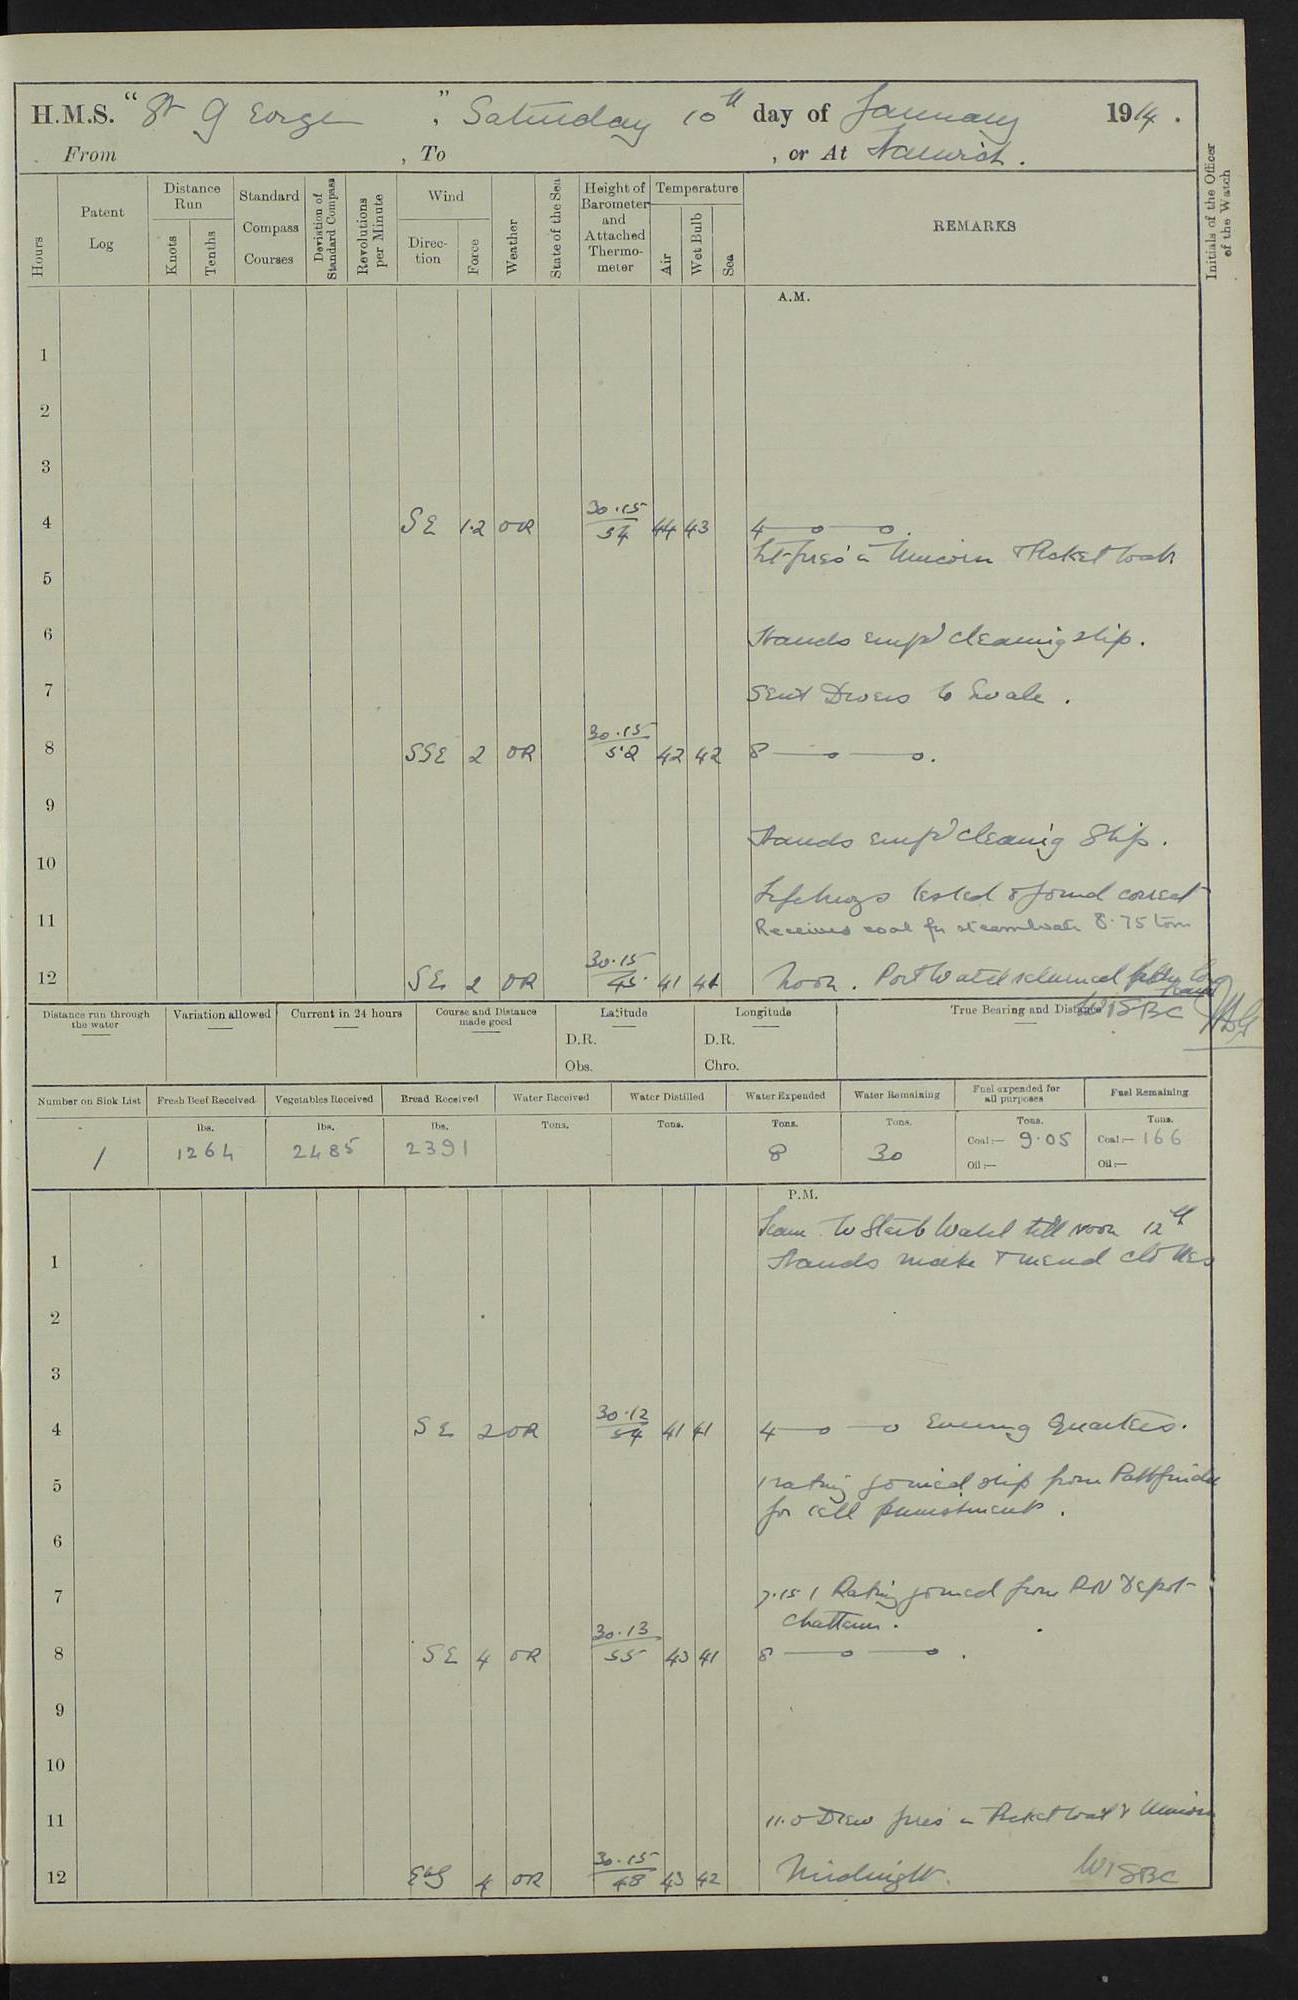 H.M.S. "St George", Saturday 10th day of January 1914.
From , To , or At Harwich.
Hours
Patent Log
Distance Run
Knots
Tenths
Standard Compass Courses
Deviation of Standard Compass
Revolutions per Minute
Wind
Direc-tion
Force
Weather
State of the Sea
Height of Barometer and Attached Thermo-meter
Temperature
Air
Wet Bulb
Sea
REMARKS
Initials of the Officer of the Watch
A.M.
1
2
3
4 SE 1.2 OR 30.15 54 44 43 4 —o—o.
Lit fires in Unicorn & Picket boat
5
6 Hands emp'd cleaning ship.
7 Sent Divers to Swale.
8 SSE 2 OR 30.15 52 42 42 8 —o—o.
9
Hands emp'd cleaning Ship.
10
Lifebuoys tested & found correct
11 Received coal for steamboats 8.75 tons
12 SE 2 OR 30.15 45 41 41 Noon. Port Watch returned from
leave
Distance run through the water
Variation allowed
Current in 24 hours
Course and Distance made good
Latitude
D.R.
Obs.
Longitude
D.R.
Chro.
True Bearing and Distance
WISBC
Number on Sick List
Fresh Beef Received
Vegetables Received
Bread Received
Water Received
Water Distilled
Water Expended
Water Remaining
Fuel expended for all purposes
Fuel Remaining
lbs. lbs. lbs. Tons. Tons. Tons. Tons. Tons. Tons.
1 1264 2485 2391 8 30 Coal:— 9.05 Coal:— 166
Oil:— Oil:—
P.M.
Leave to Starb Watch till noon 12th
1 Hands make & mend clothes
2
3
4 SE 2 OR 30.12 54 41 41 4 —o—o Evening Quarters.
5 1 rating joined ship from Pathfinder
for cell punishment.
6
7 7.15 1 Rating joined from RN Depot
Chatham.
8 SE 4 OR 30.13 55 43 41 8 —o—o.
9
10
11 11.0 Drew fires in Picket boat & Unicorn
12 EbS 4 OR 30.15 48 43 42 Midnight. WISBC